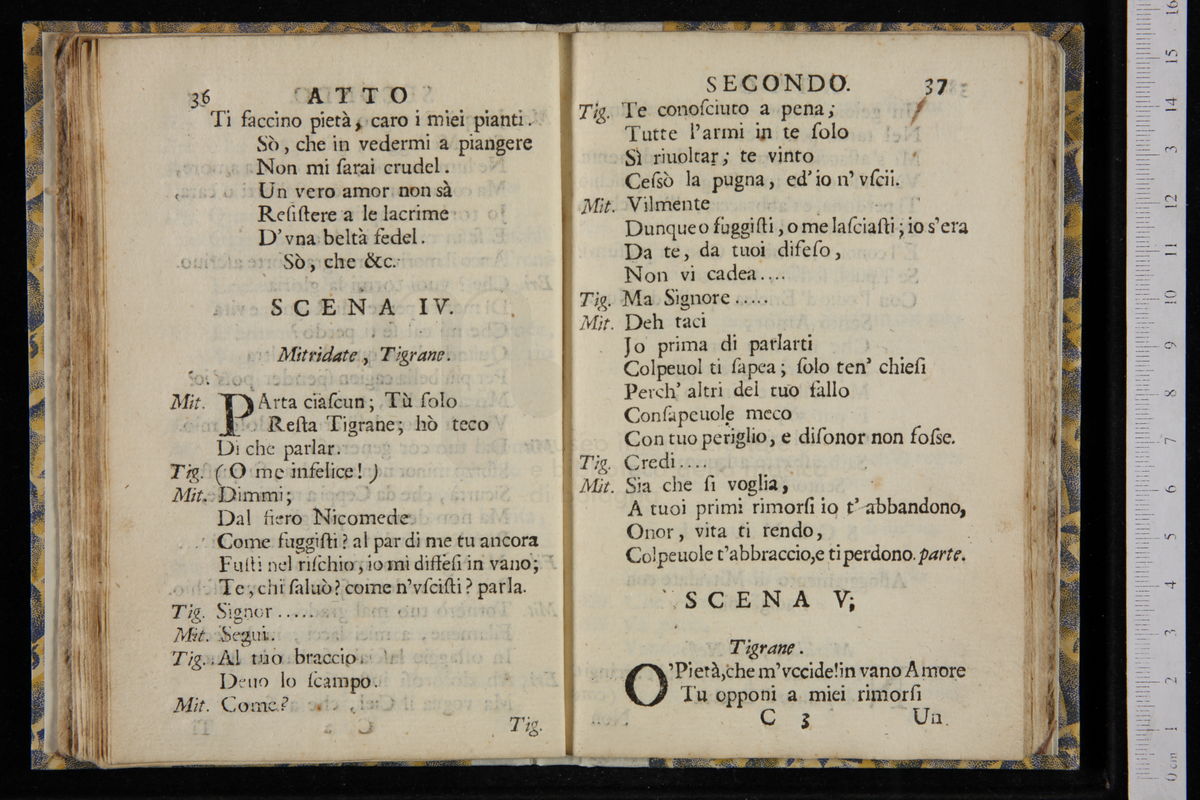 36 ATTO
Ti faccino pietà, caro i miei pianti.
Sò, che in vedermi a piangere
Non mi ſarai crudel.
Un vero amor non sà
Reſiſtere a le lacrime
D'vna beltà fedel.
Sò, che &c.
SCENA IV.
Mitridate, Tigrane.
Mit. PArta ciaſcun; Tù ſolo
Reſta Tigrane; hò teco
Di che parlar.
Tig. (O me infelice!)
Mit. Dimmi;
Dal fiero Nicomede
Come fuggiſti? al par di me tu ancora
Fuſti nel riſchio, io mi diffeſi in vano;
Te, chi ſaluò? come n'vſciſti? parla.
Tig. Signor .....
Mit. Segui.
Tig. Al tuo braccio
Deuo lo ſcampo.
Mit. Come?
Tig.
SECONDO. 37
Tig. Te conoſciuto a pena;
Tutte l'armi in te ſolo
Sì riuoltar; te vinto
Ceſsò la pugna, ed'io n'vſcii.
Mit. Vilmente
Dunque o fuggiſti, o me laſciaſti; io s'era
Da te, da tuoi difeſo,
Non vi cadea....
Tig. Ma Signore.....
Mit. Deh taci
Jo prima di parlarti
Colpeuol ti ſapea; ſolo ten' chieſi
Perch' altri del tuo fallo
Conſapeuole meco
Con tuo periglio, e diſonor non foſse.
Tig. Credi....
Mit. Sia che ſi voglia,
A tuoi primi rimorſi io t'abbandono,
Onor, vita ti rendo,
Colpeuole t'abbraccio, e ti perdono. parte.
SCENA V;
Tigrane.
O'Pietà, che m'vccide! in vano Amore
Tu opponi a miei rimorſi
C 3 Un